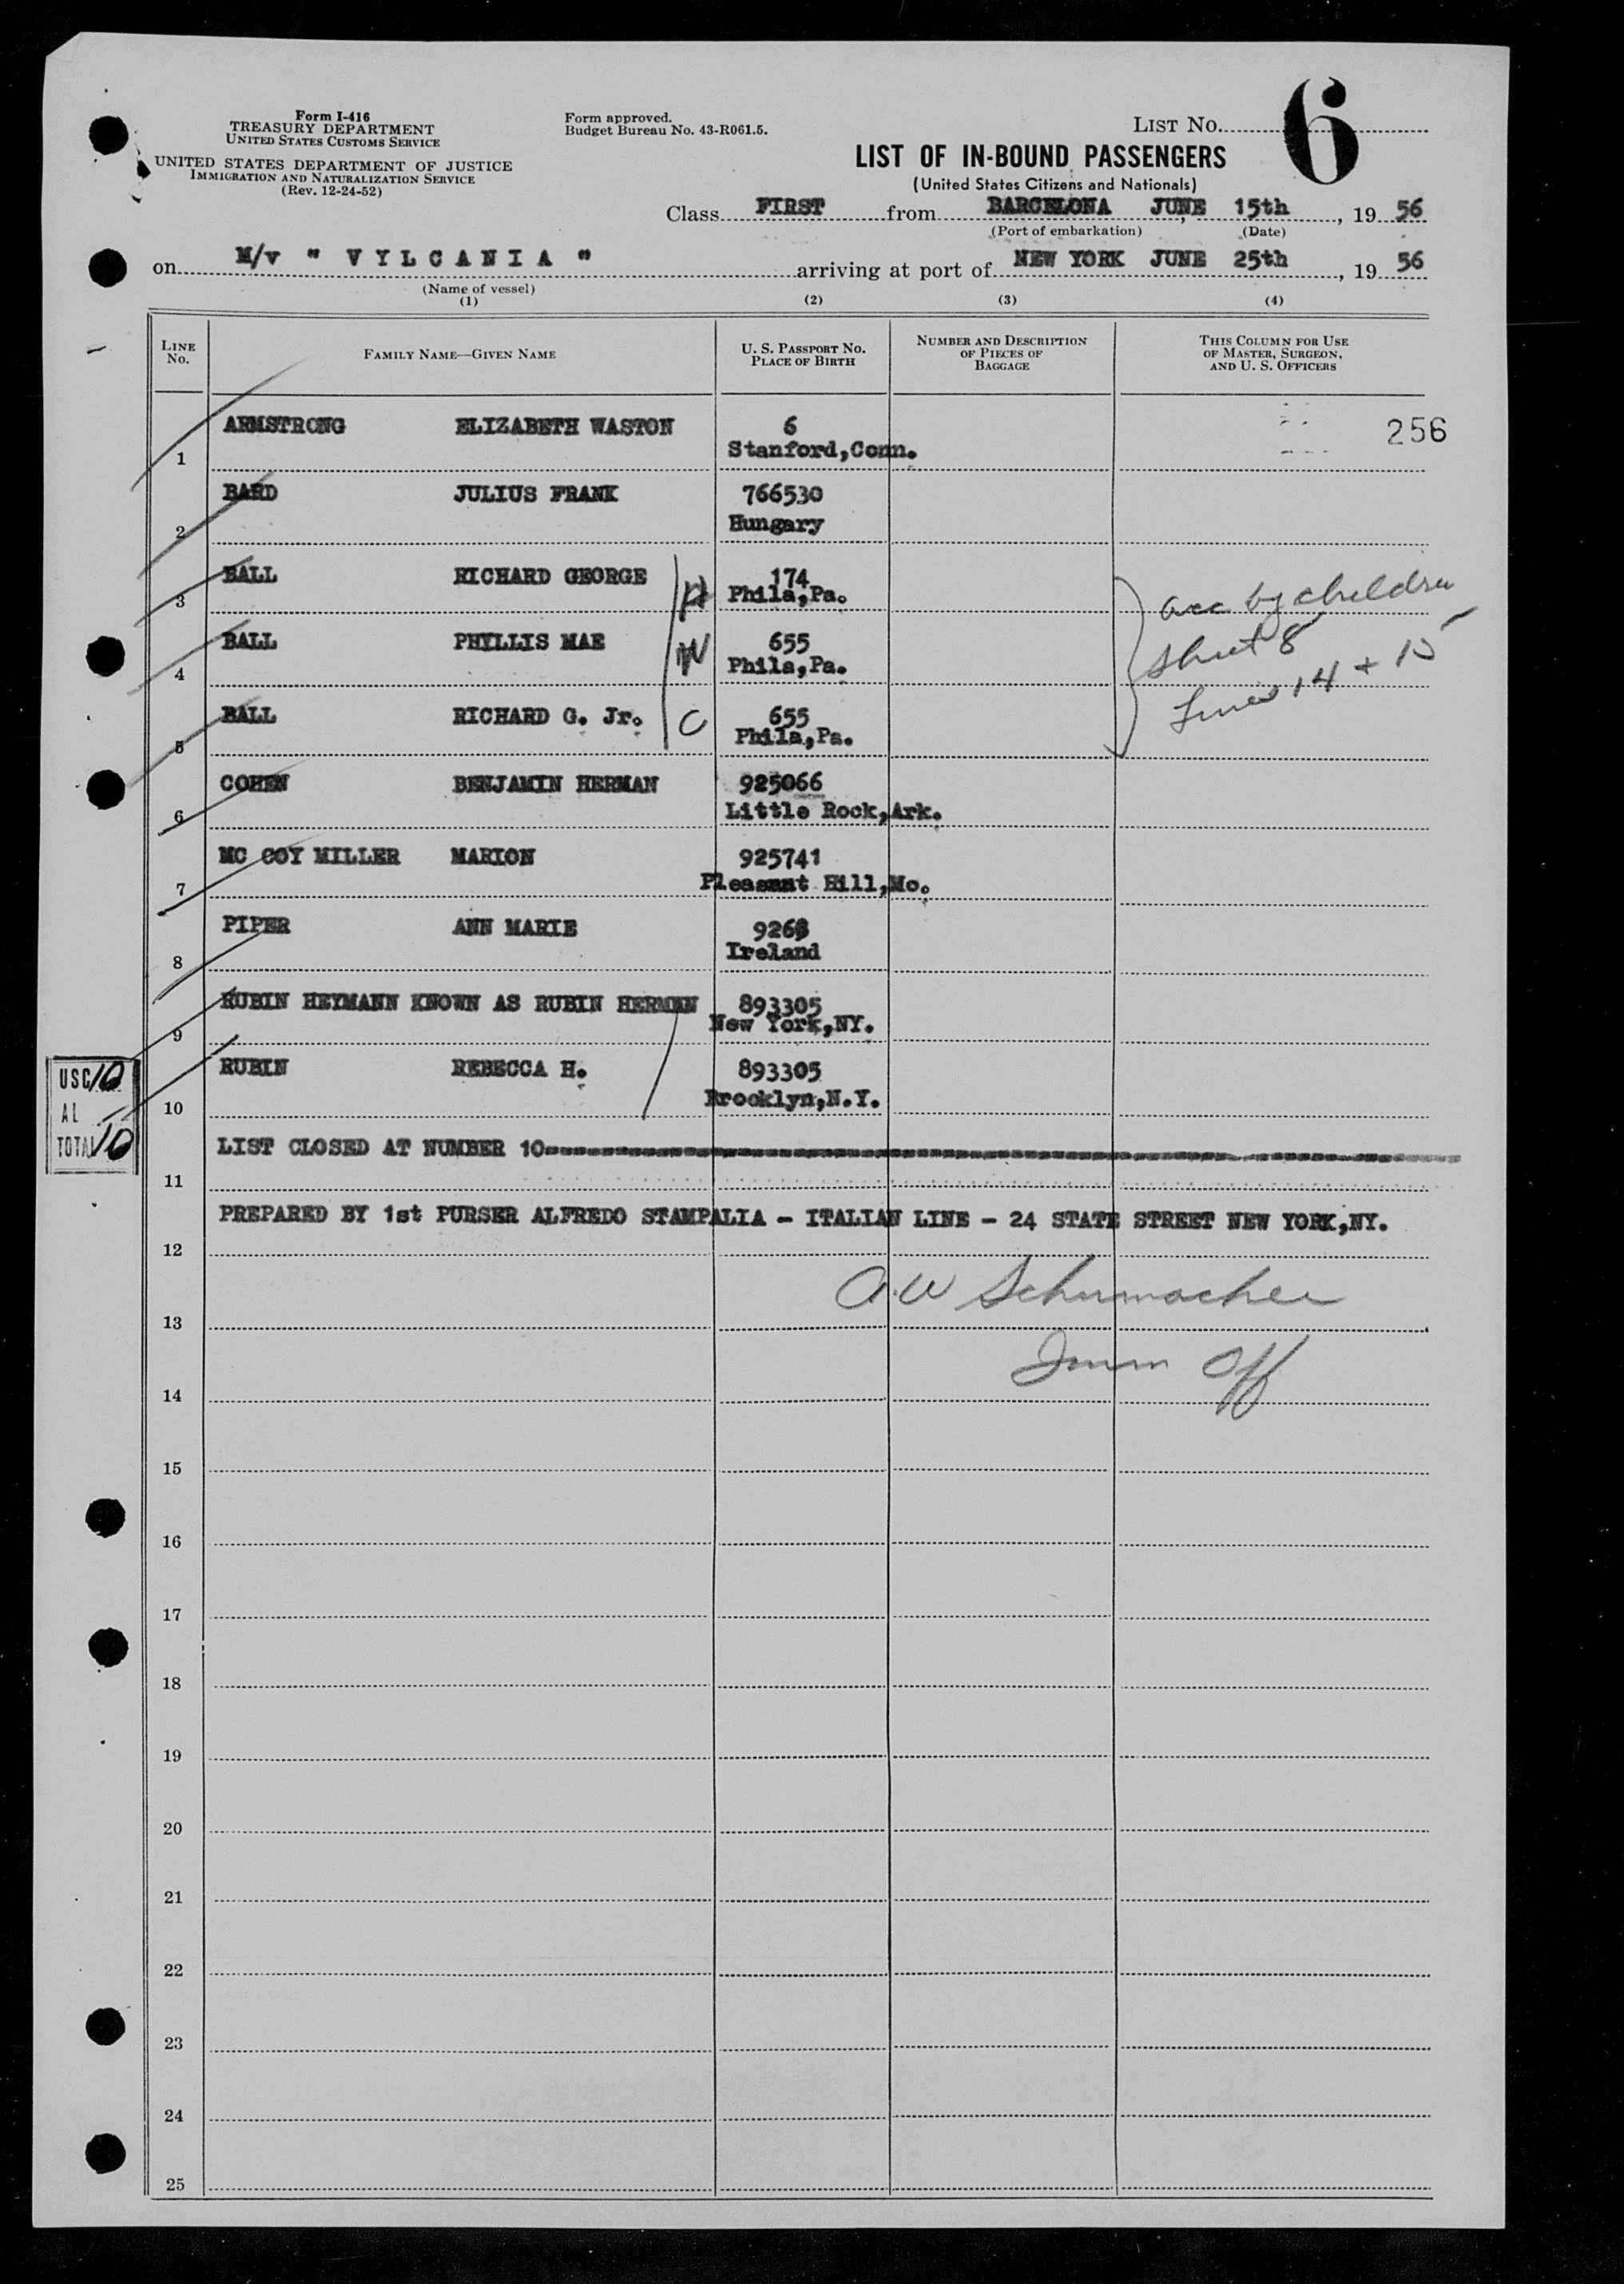 Form I-416
TREASURY DEPARTMENT
UNITED STATES CUSTOMS SERVICE
UNITED STATES DEPARTMENT OF JUSTICE
IMMIGRATION AND NATURALIZATION SERVICE
(Rev. 12-24-52)
Form approved.
Budget Bureau No. 43-R061.5.
LIST No. 6
LIST OF IN-BOUND PASSENGERS
(United States Citizens and Nationals)
Class FIRST from BARCELONA JUNE 15th, 19 56
(Port of embarkation) (Date)
on M/v " VYLCANIA " arriving at port of NEW YORK JUNE 25th, 19 56
(Name of vessel)
(1) (2) (3) (4)
LINE No. FAMILY NAME—GIVEN NAME U. S. PASSPORT NO. PLACE OF BIRTH NUMBER AND DESCRIPTION OF PIECES OF BAGGAGE THIS COLUMN FOR USE OF MASTER, SURGEON, AND U. S. OFFICERS
ARMSTRONG ELIZABETH WASTON 6 256
1 Stanford,Conn.
BARD JULIUS FRANK 766530
2 Hungary
BALL RICHARD GEORGE H 174 acc by children
3 Phila,Pa.
BALL PHYLLIS MAE W 655 sheet 8
4 Phila,Pa. Lines 14 + 15
BALL RICHARD G. Jr. C 655
5 Phila,Pa.
COHEN BENJAMIN HERMAN 925066
6 Little Rock,Ark.
MC COY MILLER MARION 925741
7 Pleasant Hill,Mo.
PIPER ANN MARIE 9268
8 Ireland
RUBIN HEYMANN KNOWN AS RUBIN HERMEN 893305
9 New York,NY.
RUBIN REBECCA H. 893305
10 Brooklyn,N.Y.
USC 10
AL
TOTAL 10
LIST CLOSED AT NUMBER 10
11
PREPARED BY 1st PURSER ALFREDO STAMPALIA - ITALIAN LINE - 24 STATE STREET NEW YORK,NY.
12
A.W Schumacher
13
Imm Off
14
15
16
17
18
19
20
21
22
23
24
25